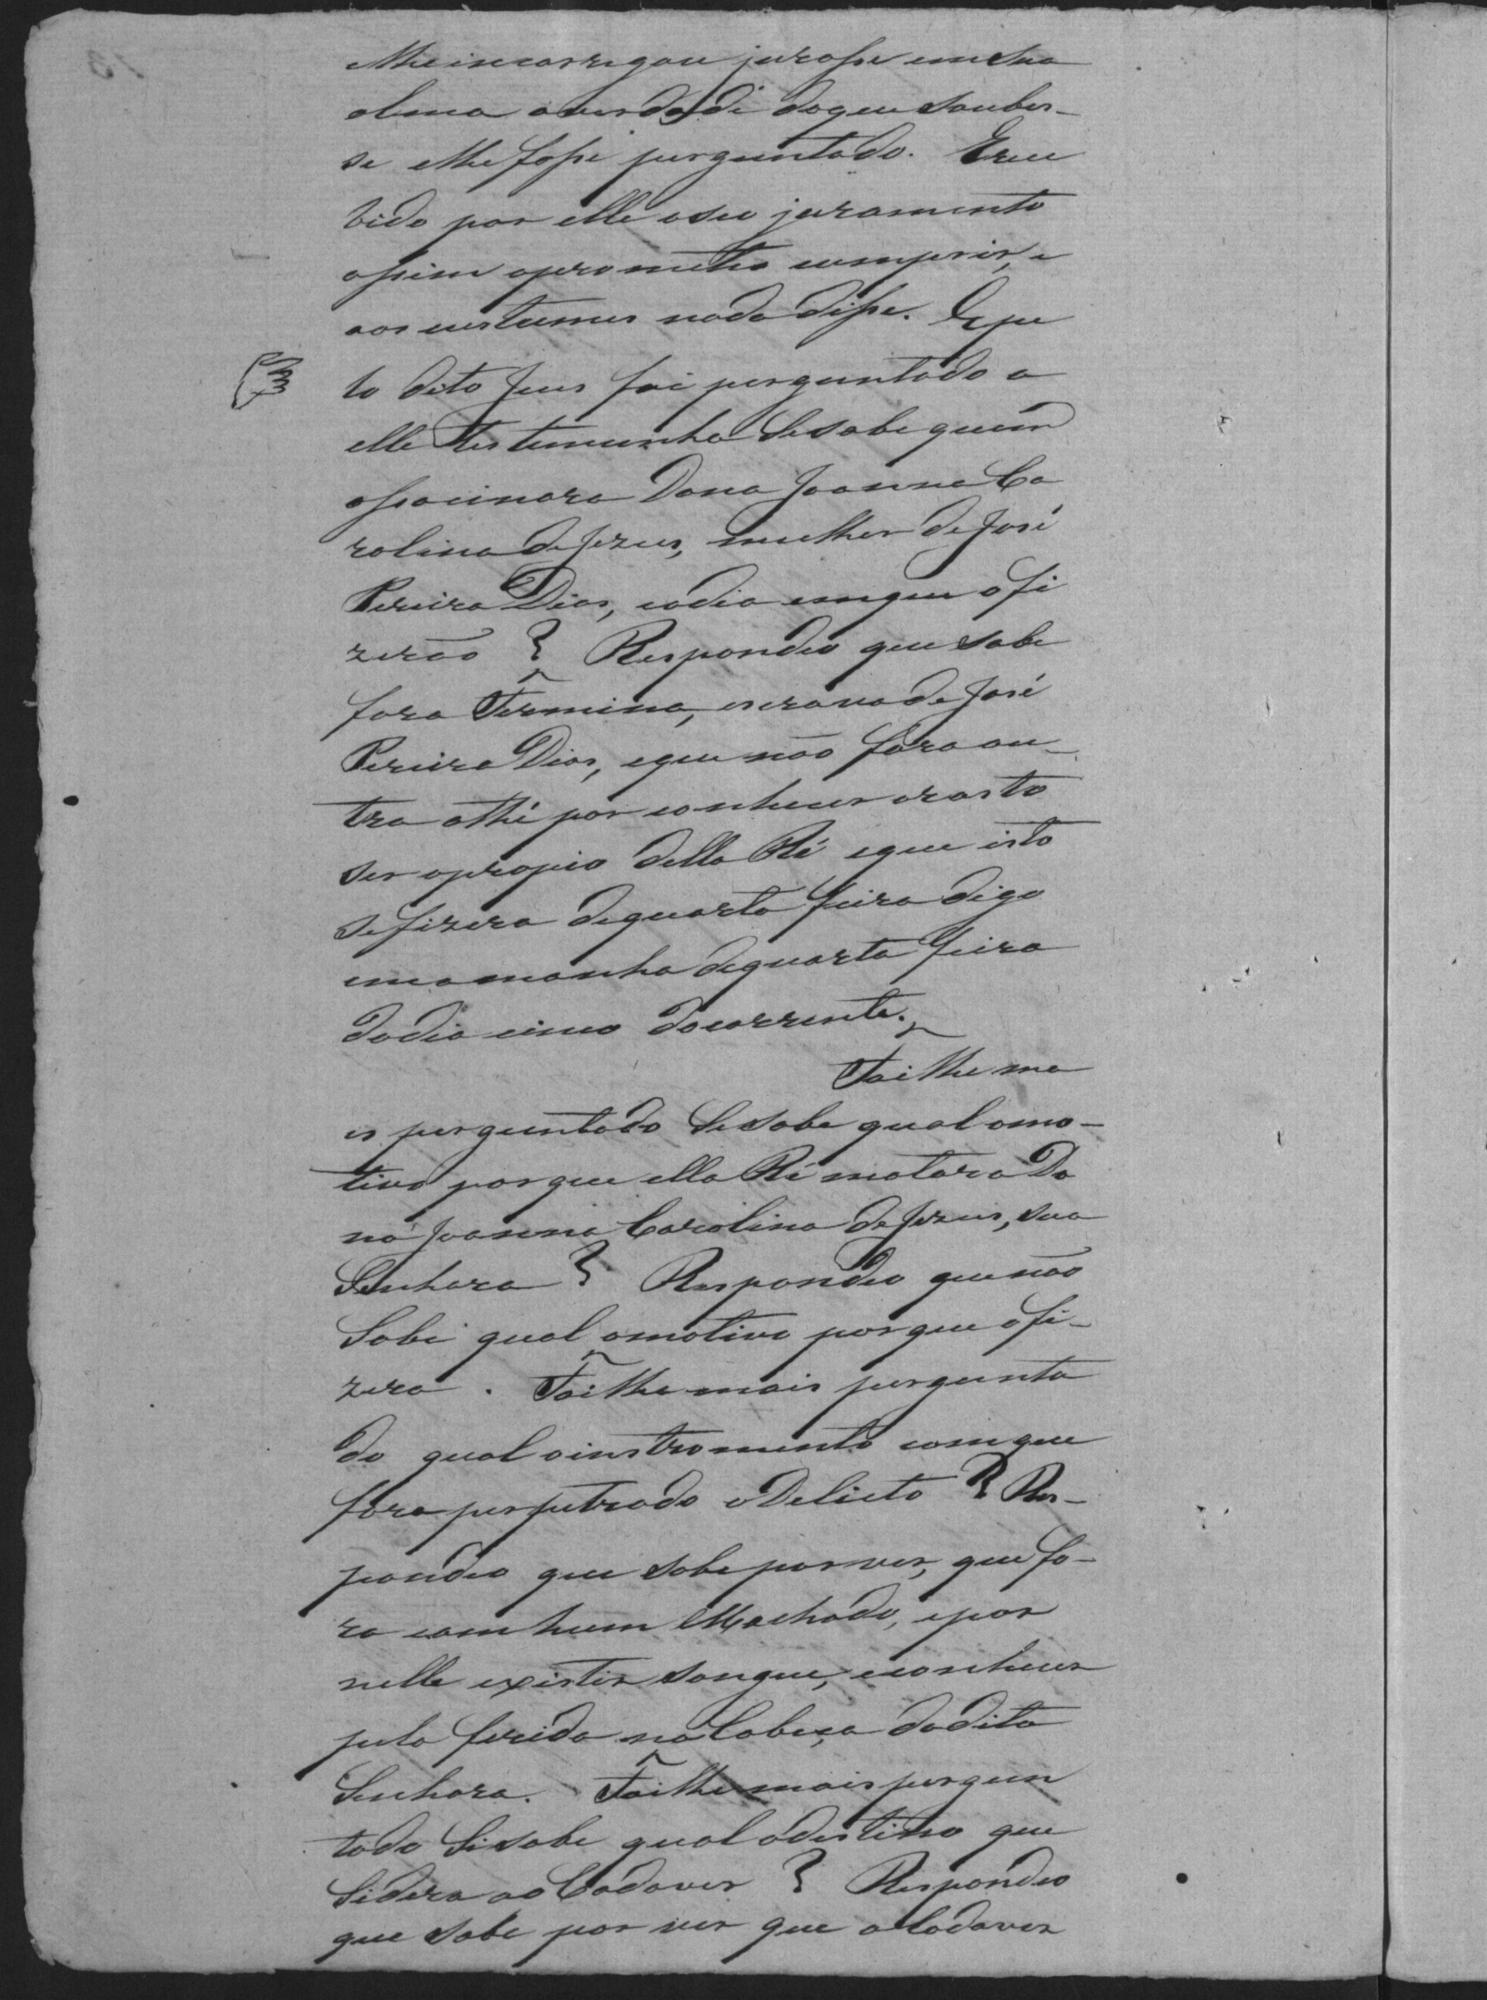 e lhe incarregou jurasse em sua
alma a verdade do que soubes-
se e lhe fosse perguntado. E rece
bido por elle o seu juramento
assim o prometteo comprir, e
aos custumes nada disse. E pe
lo dito Juis foi perguntado a
elle testemunha se sabe quem
assacinara Dona Joanna Ca
rolina de Jezus, mulher de José
Pereira Dias, e o dia em que o fi
zerão ? Respondeo que sabe
fora Fermina, escrava de José
Pereira Dias, e que não fora ou-
tra athé por conhecer o rasto
ser o propio della Ré e que isto
se fizera de quarta feira digo
em a manha de quarta feira
do dia cinco do corrente.
Foi lhe ma
is perguntado se sabe qual o mo-
tivo por que ella Ré matara Do
na Joanna Carolina de Jezus, sua
Senhora ? Respondeo que não
Sabe qual o motivo por que o fi-
zera. Foi lhe mais pergunta
do qual o instromento com que
fora perpetrado o Delicto ? Res-
pondeo que sabe por ver, que fo-
ra com hum Machado, e por
nelle existir sangue, e conhecer
pela ferida na Cabeça da dita
Senhora. Foi lhe mais pergun
tado Se sabe qual o destino que
Se dera ao Cadaver ? Respondeo
que sabe por ver que o Cadaver